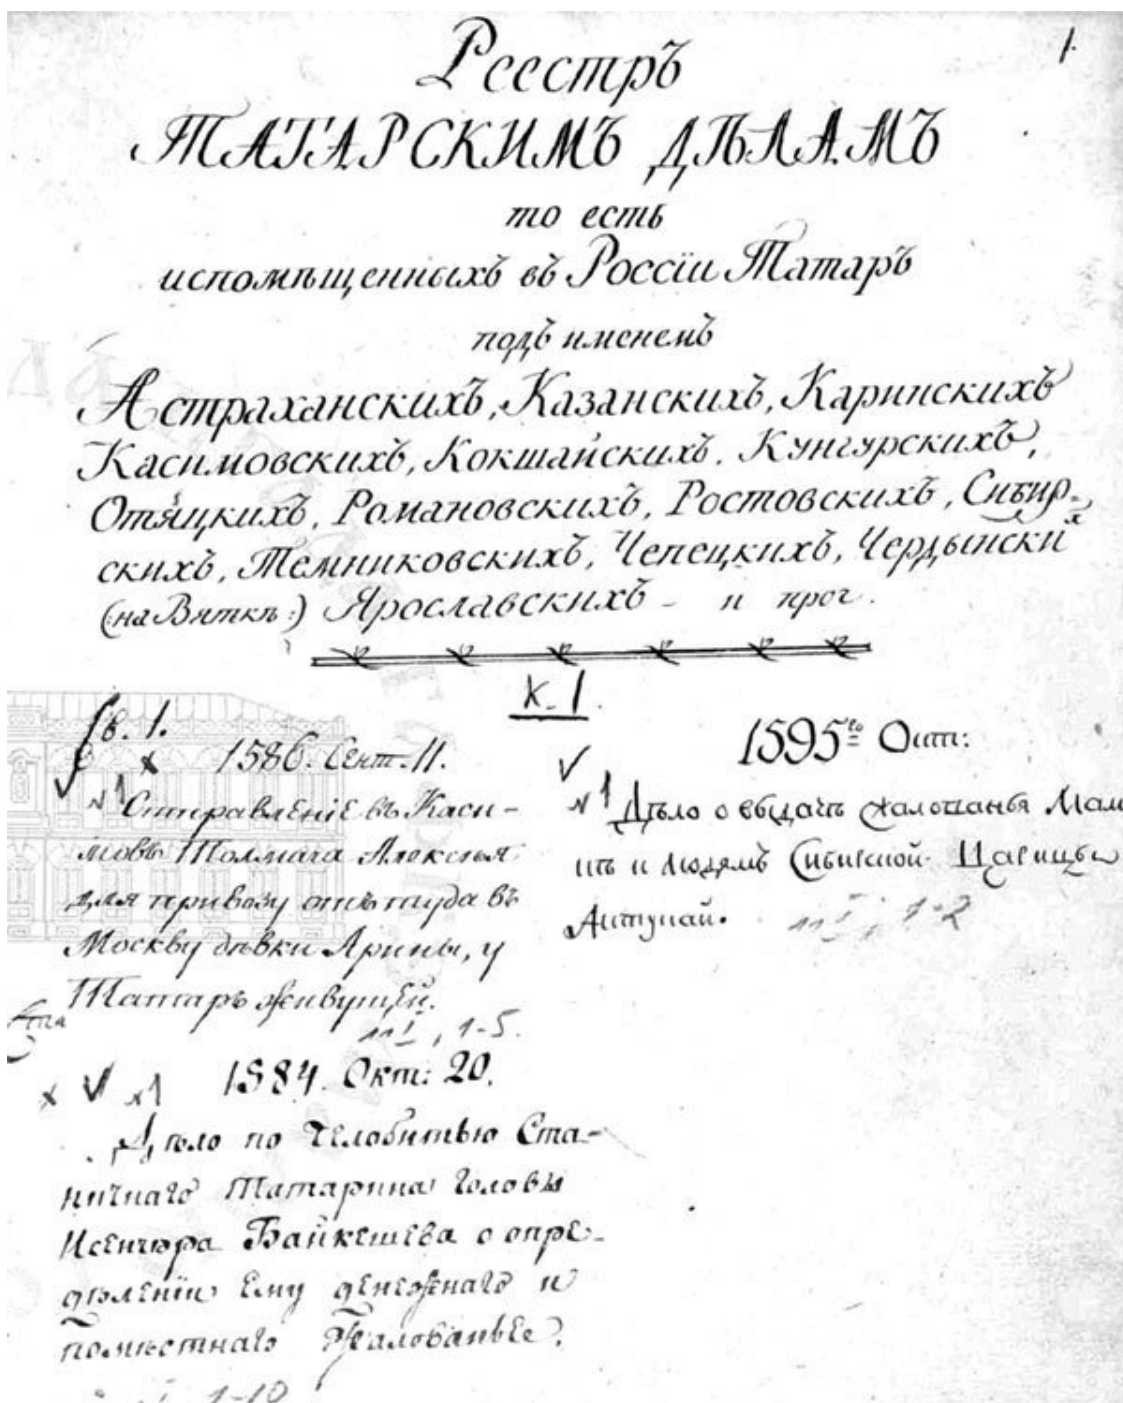 1.
Реестръ
ТАТАРСКИМЪ ДѢЛАМЪ
то есть
испомѣщенныхъ въ Россïи Татаръ
подъ именемъ
Астраханскихъ, Казанскихъ, Каринскихъ
Касимовскихъ, Кокшайскихъ, Кунгурскихъ,
Отяцкихъ, Романовскихъ, Ростовскихъ, Сибир-
скихъ, Темниковскихъ, Чепецкихъ, Чердынскихъ
(на Вяткѣ:) Ярославскихъ - и проч.
К. 1.
Св. 1.
1586. Сент. 11.
№ 1 Отправленіе въ Каси-
мовъ Толмача Алексѣя
для привозу оттуда въ
Москву дѣвки Арины, у
Татаръ живущей.
1-5.
1584. Окт: 20.
№ 1
Дѣло по челобитью Ста-
ничнаго Татарина головы
Исенчюра Байкешева о опре-
дѣленіи ему денежнаго и
помѣстнаго жалованья.
1-10
1595го Окт:
№ 1 Дѣло о выдачѣ жалованья Мам
и людямъ Сибирской Царицы
1-2